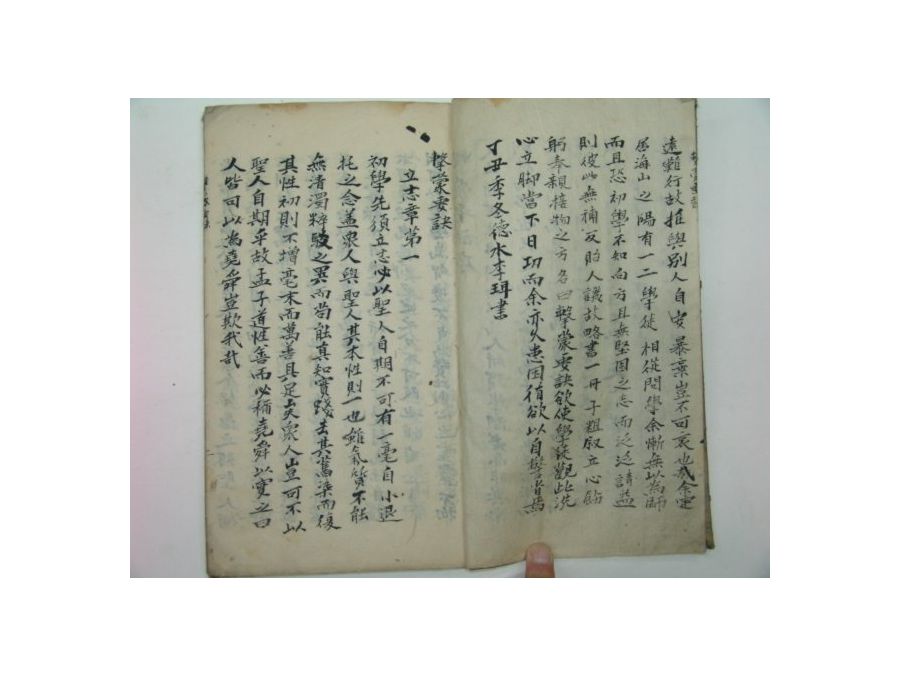 遠難行故推與別人自安暴棄豈不可哀也哉余定
居海山之陽有一二學徒相從問學余慚無以爲師
而且恐初學不知向方且無堅固之志而泛泛請益
則彼此無補反貽人譏故略書一冊子粗叙立心飭
躬奉親接物之方名曰擊蒙要訣欲使學徒觀此洗
心立脚當下日功而余亦久患因循欲以自警省焉
丁丑季冬德水李珥書
擊蒙要訣
立志章第一
初學先須立志必以聖人自期不可有一毫自小退
托之念盖衆人與聖人其本性則一也雖氣質不能
無清濁粹駁之異而苟能真知實踐去其舊染而復
其性初則不增毫末而萬善具足矣衆人豈可不以
聖人自期乎故孟子道性善而必稱堯舜以實之曰
人皆可以爲堯舜豈欺我哉